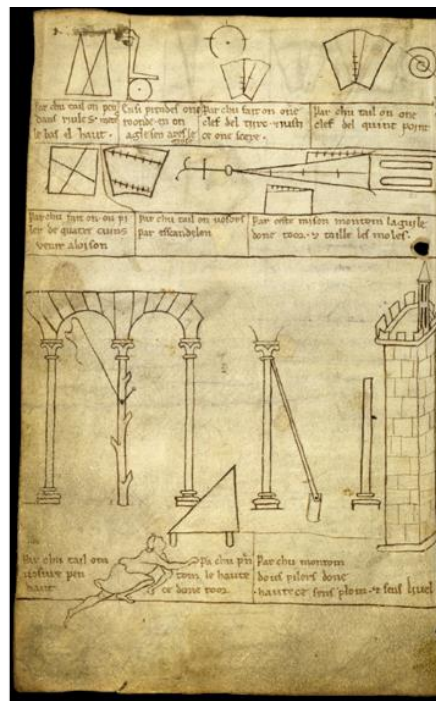 Par chu tail on pen
dans riule
le bas el haut.
Ensi prendes one
roonde en on
agle sen ares le
grose
Par chu fait on one
clef del tirc
Par chu tail on one
clef del quint point
Par chu fait on on pi
ler de quater cuins
venir aloison
Par chu tail on vosors
par esscandelon
Par ceste raison montom laguile
done toor. ⁊ taille les moles.
Par chu tail om
vosure pen
haut
Par chu prent
tom le haute
ce done toor.
Par chu montom
dous pilers done
hautece sens plom. ⁊ sens livel